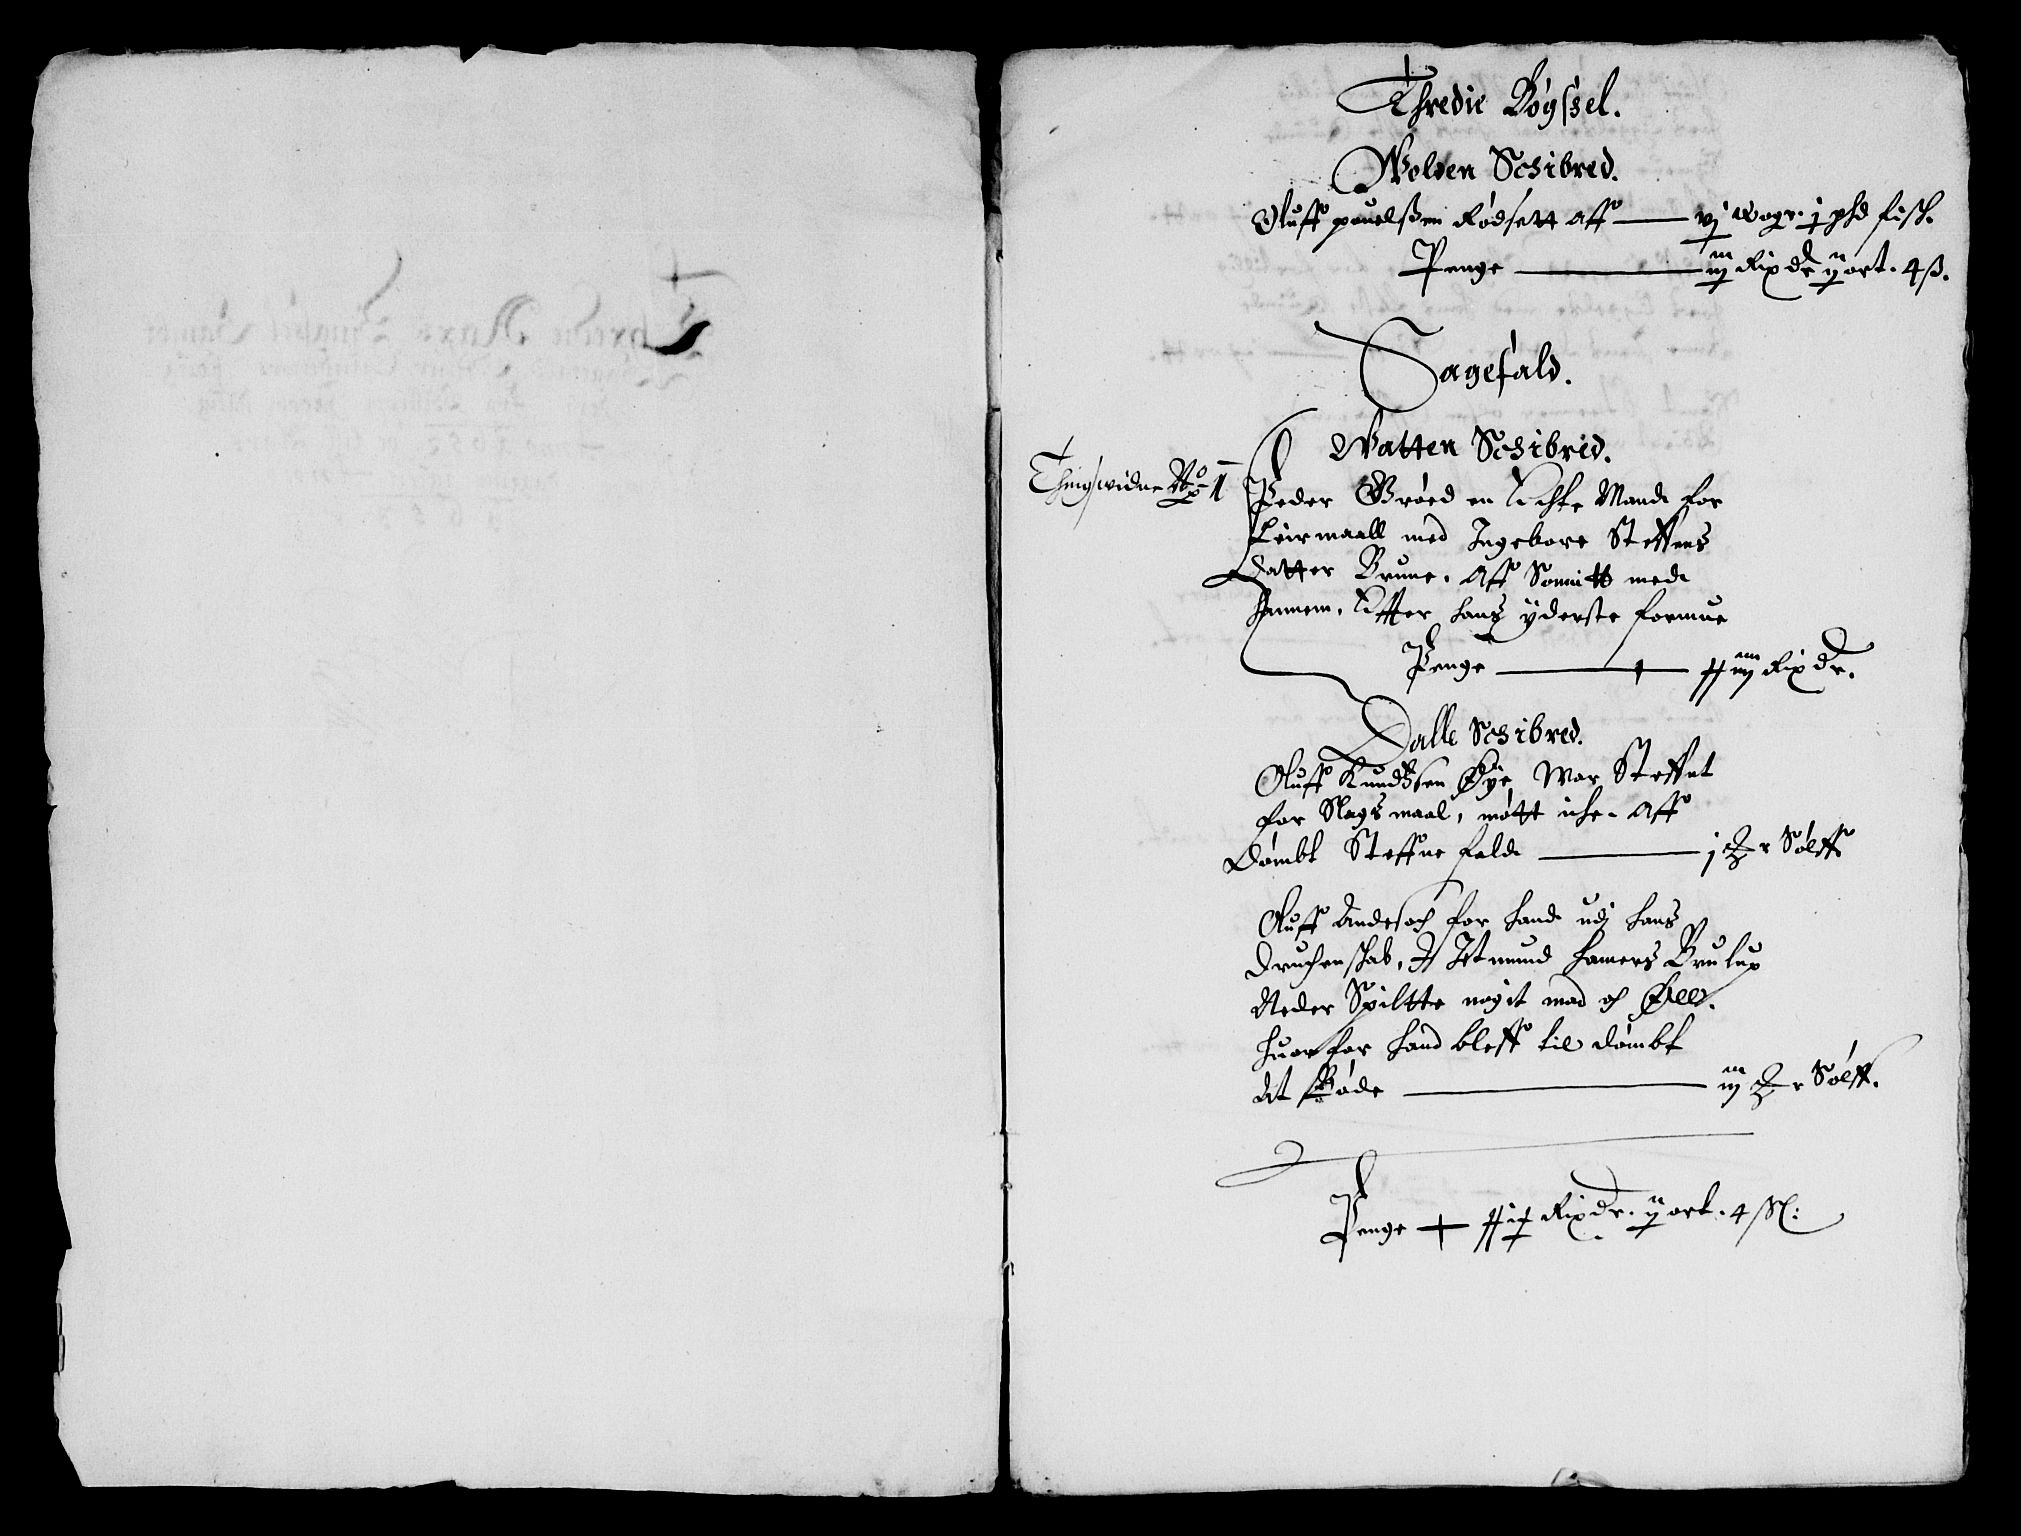 Thredie Bøgssel.
Wolden Schibred.
Oluff pouelßen Rødsett aff — vj wogr. j phd fisk.
Penge — iij Rixdr ij ort. 4 ß.
Sagefald.
Watten Schibrid.
Thingswidne No 1
Peder Grøed en Mand for
Leirmaall med Ingebore Steffens
Datter Brune. Aff Sonnitt med
hannem, Effter hans yderste formue
Penge — iiij Rixdr.
Dalle Schibred.
Oluff Knudtzsen Øye War Steffnt
for Slagsmaal, møtt iche. Aff
Dømbt Steffne fald — j r Sølff
Oluff for hand udj hans
Druchenskab, J Jetmund hamers Brulup
Neder Spiltte nogit mad och Øll.
huorfor hand bleff til dømbt
At Bøde — iij r Sølff.
Penge Rixdr. ij ort. 4 ßl: